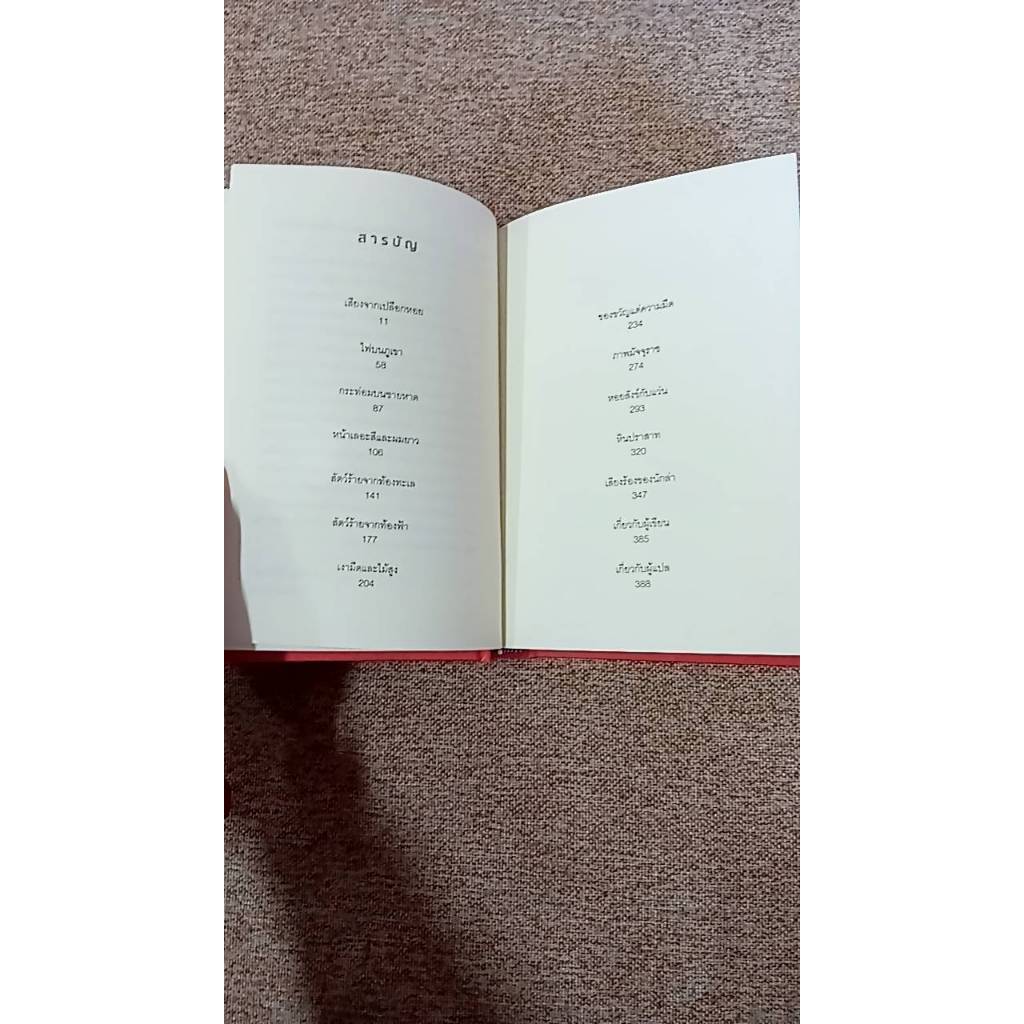 สารบัญ
เสียงจากเปลือกหอย
11
ไฟบนภูเขา
58
กระท่อมบนชายหาด
87
หน้าเลอะสีและผมยาว
106
สัตว์ร้ายจากท้องทะเล
141
สัตว์ร้ายจากท้องฟ้า
177
เงามืดและไม้สูง
204
ของขวัญแด่ความมืด
234
ภาพมัจจุราช
274
หอยสังข์กับแว่น
293
หินปราสาท
320
เสียงร้องของนักล่า
347
เกี่ยวกับผู้เขียน
385
เกี่ยวกับผู้แปล
388